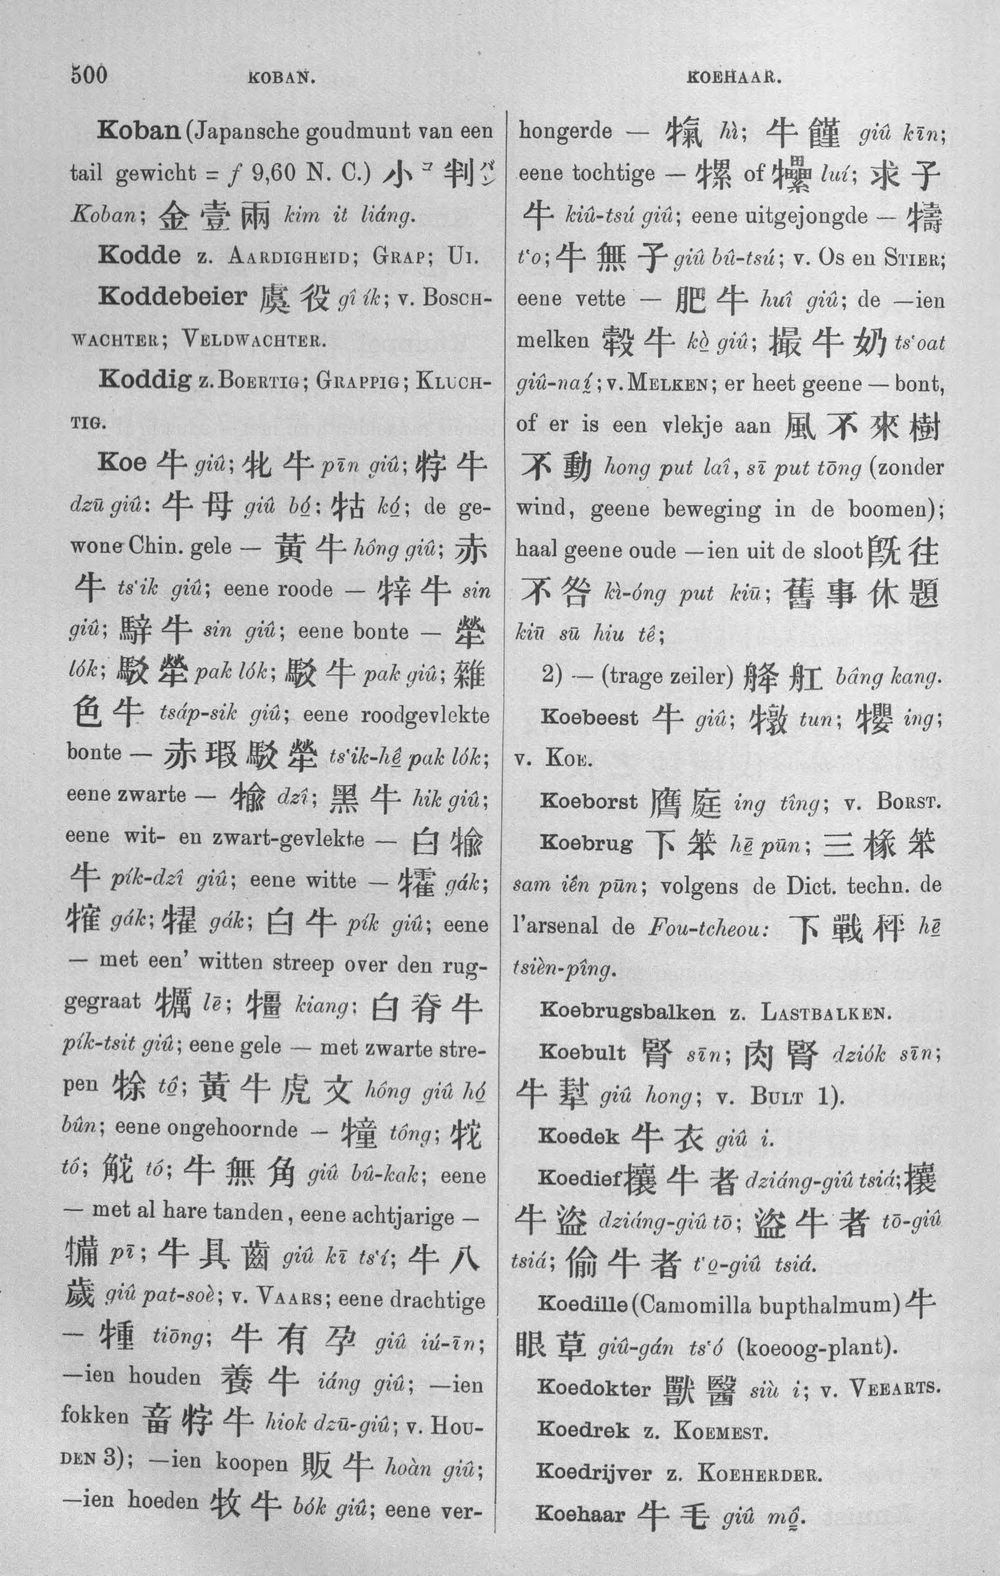 500 KOBAN. KOEHAAR.
Koban (Japansche goudmunt van een
tail gewicht = ƒ 9,60 N. C.) 小コ判バン
Koban; 金壹兩 kim it liáng.
Kodde z. AARDIGHEID; GRAP; UI.
Koddebeier 虞役 gî ík; v. BOSCH-
WACHTER; VELDWACHTER.
Koddig z. BOERTIG; GRAPPIG; KLUCH-
TIG.
Koe 牛 giû;牝牛 pīn giû; 牸牛
dzū giû: 牛母 giû bó̤; 牯 kó̤; de ge-
wone Chin. gele — 黃牛 hông giû; 赤
牛 ts‘ik giû; eene roode — 牸牛 sin
giû; 騂牛 sin giû; eene bonte — 犖
lók; 駁犖 pak lók; 駁牛 pak giû; 雜
色牛 tsáp-sik giû; eene roodgevlekte
bonte — 赤瑕駁犖 ts‘ik-hê̤ pak lók;
eene zwarte — 牏 dzî; 黑牛 hik giû;
eene wit- en zwart-gevlekte — 白牏
牛 pík-dzî giû; eene witte — 㹊 gák;
㹊 gák; gák; 白牛 pík giû; eene
— met een’ witten streep over den rug-
gegraat 犡 lē; 犟 kiang; 白脊牛
pík-tsit giû; eene gele — met zwarte stre-
pen 㹛 tô̤; 黃牛虎文 hông giû hó̤
bûn; eene ongehoornde — 犝 tông; 牠
tó; 觝 tó; 牛無角 giû bû-kak; eene
— met al hare tanden, eene achtjarige —
犕 pī; 牛具齒 giû kī ts‘í; 牛八
歲 giû pat-soè; v. VAARS; eene drachtige
— 㹣 tiōng; 牛有孕 giû iú-īn;
—ien houden 養牛 iáng giû; —ien
fokken 畜牸牛 hiok dzū-giû; v. HOU-
DEN 3); —ien koopen 販牛 hoàn giû;
—ien hoeden 牧牛 bók giû; eene ver-
hongerde — 犔 hì; 牛饉 giû kīn;
eene tochtige — 㹎 of luí; 求子
牛 kiû-tsú giû; eene uitgejongde — 㹗
t‘o; 牛無子 giû bû-tsú; v. OS en STIER;
eene vette — 肥牛 huî giû; de —ien
melken 㝅牛 kò̤ giû; 撮牛奶 ts‘oat
giû-naí; v. MELKEN; er heet geene — bont,
of er is een vlekje aan 風不來樹
不動 hong put laî, sī put tōng (zonder
wind, geene beweging in de boomen);
haal geene oude —ien uit de sloot 旣往
不咎 kì-óng put kiū; 舊事休題
kiū sū hiu tê;
2) — (trage zeiler) 舽舡 bâng kang.
Koebeest 牛 giû; 犜 tun; 㹚 ing;
v. KOE.
Koeborst 膺庭 ing tîng; v. BORST.
Koebrug 下笨 hē̤ pūn; 三椽笨
sam iên pūn; volgens de Dict. techn. de
l’arsenal de Fou-tcheou: 下戰枰 hē̤
tsièn-pîng.
Koebrugsbalken z. LASTBALKEN.
Koebult 腎 sīn; 肉腎 dziók sīn;
牛 giû hong; v. BULT 1).
Koedek 牛衣 giû i.
Koedief 攘牛者 dziáng-giû tsiá; 攘
牛盜 dziáng-giû tō; 盜牛者 tō-giû
tsiá; 偷牛者 t‘o̤-giû tsiá.
Koedille (Camomilla bupthalmum) 牛
眼草 giû-gán ts‘ó (koeoog-plant).
Koedokter 獸醫 siù i; v. VEEARTS.
Koedrek z. KOEMEST.
Koedrijver z. KOEHERDER.
Koehaar 牛毛 giû mô̤.